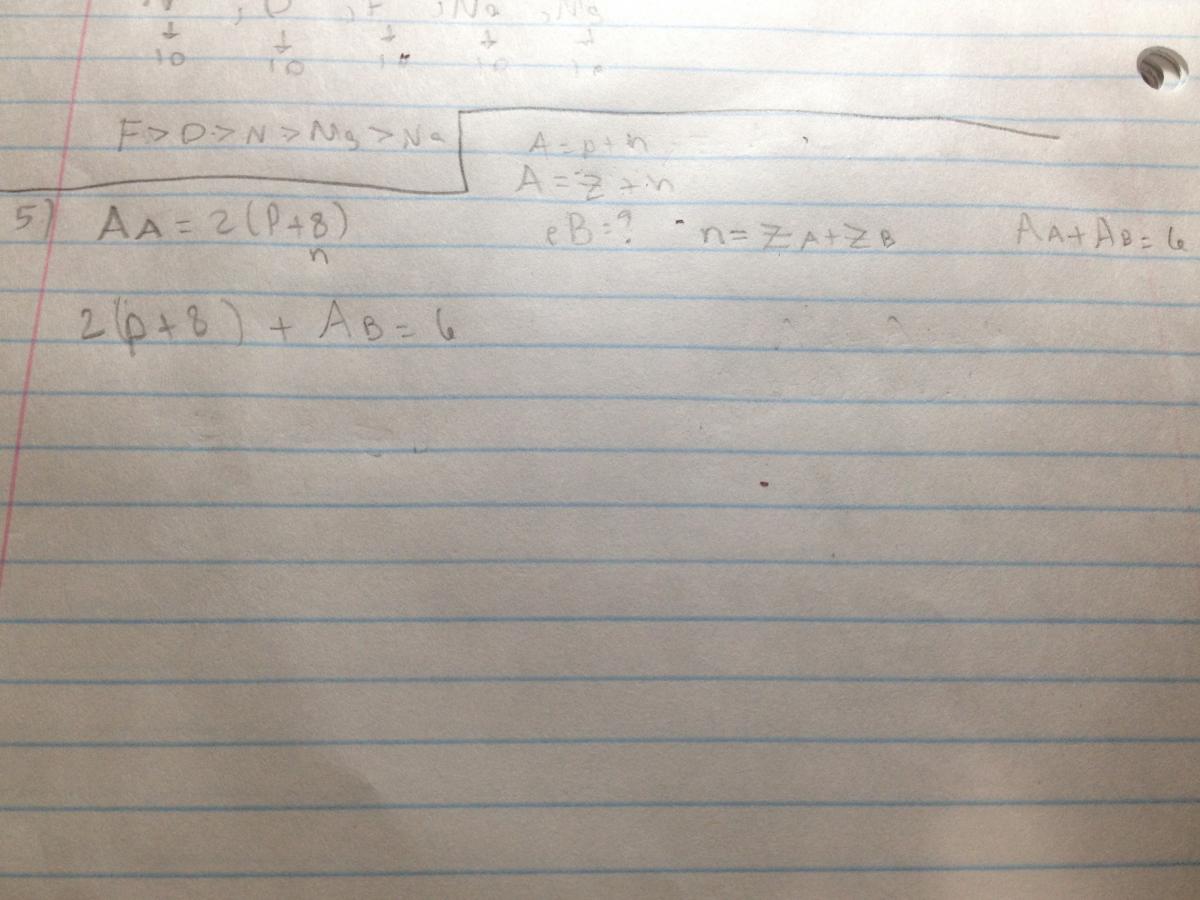 , O , F , Na , Mg
↓ ↓ ↓ ↓ ↓
10 10 10 10 10
F > O > N > Mg > Na
A = p + n
A = Z + n
5) AA = 2(P+8) eB = ? n = ZA + ZB AA + AB = 6
n
2(p+8) + AB = 6